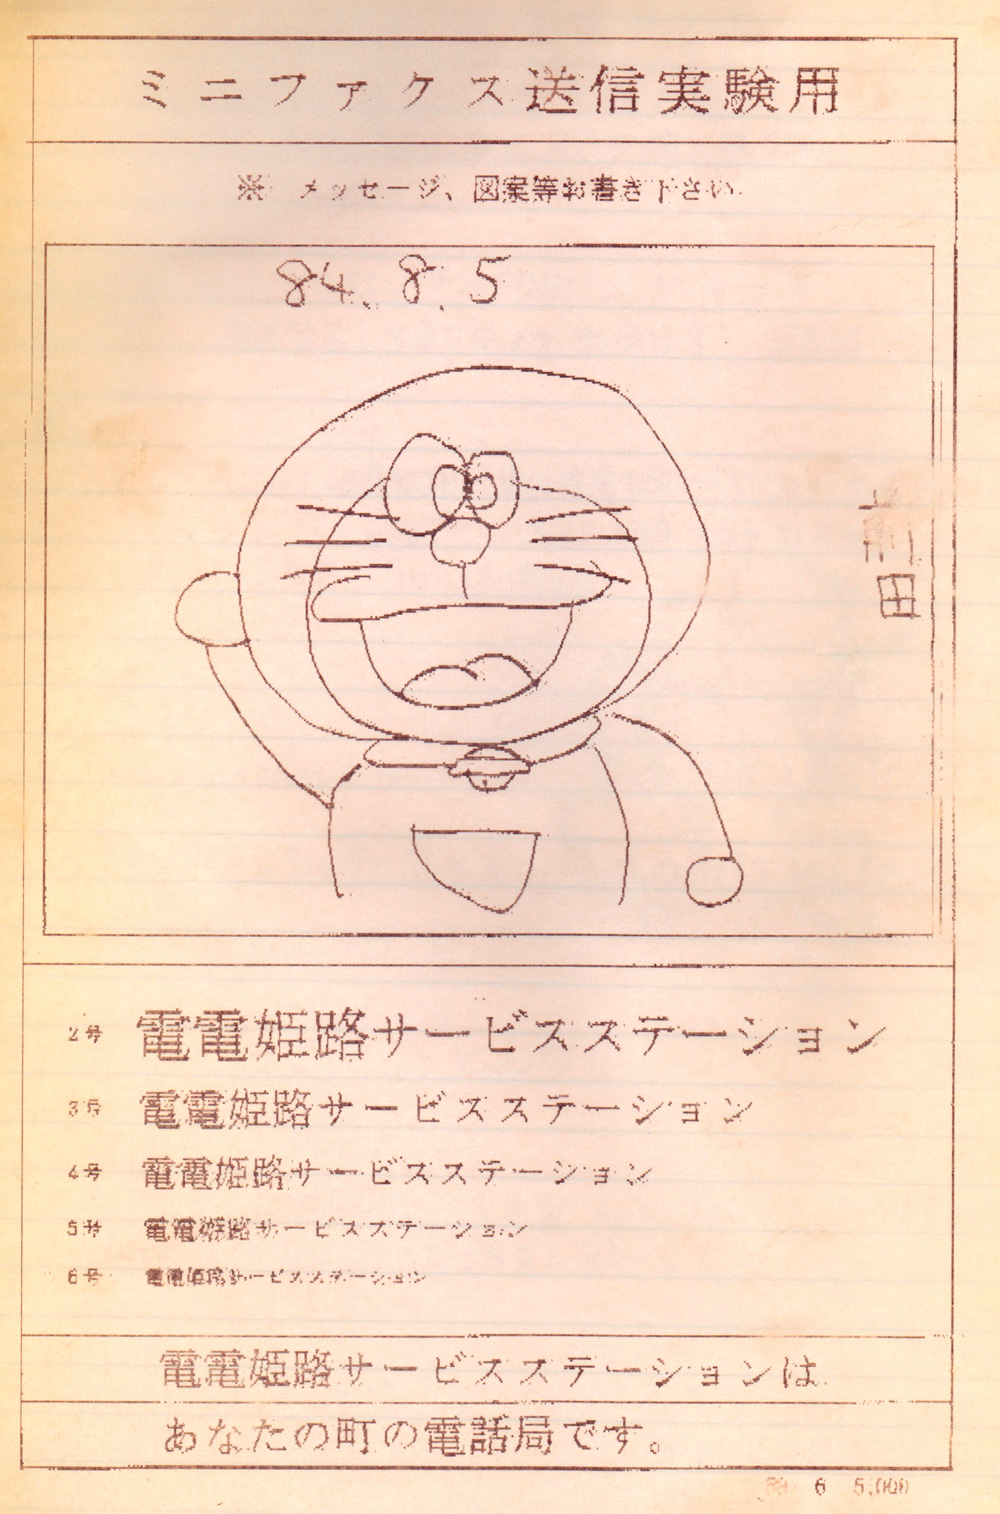 ミニファクス送信実験用
※ メッセージ、図案等お書き下さい
84.8.5
前田
2号 電電姫路サービスステーション
3号 電電姫路サービスステーション
4号 電電姫路サービスステーション
5号 電電姫路サービスステーション
6号 電電姫路サービスステーション
電電姫路サービスステーションは
あなたの町の電話局です。
59 6 5,000